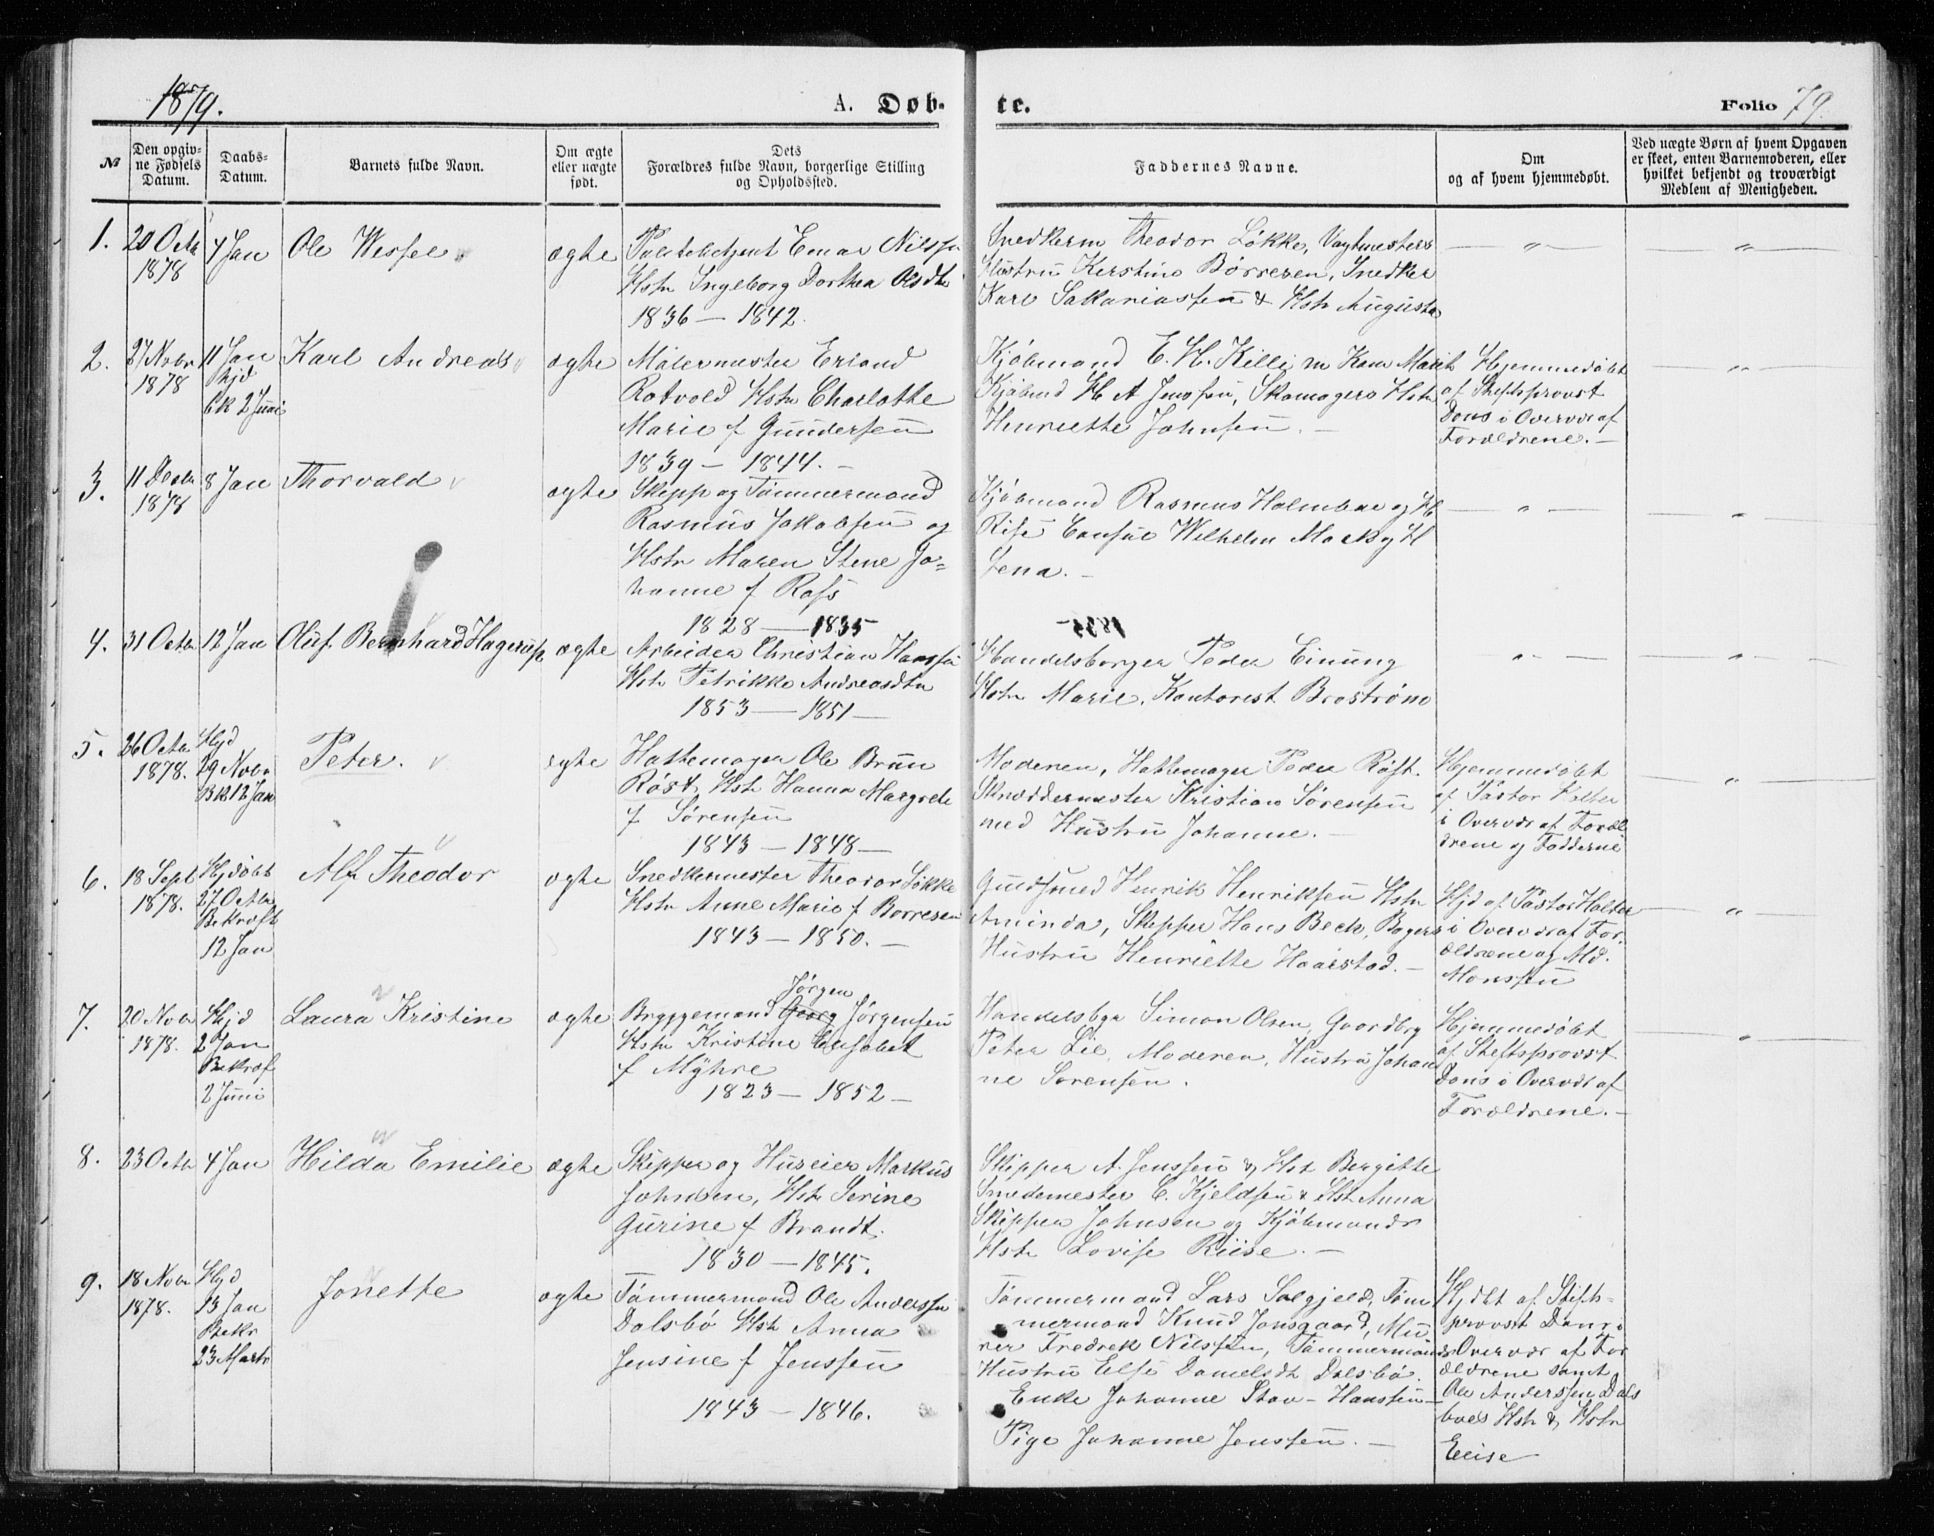 1879.
A. Døb-
te.
Folio 79.
№
Den opgiv-
ne Fødsels
Datum.
Daabs-
Datum.
Barnets fulde Navn.
Om ægte
eller nægte
født.
Dets
Forældres fulde Navn, borgerlige Stilling
og Opholdssted.
Faddernes Navne.
Om
og af hvem hjemmedøbt.
Ved nægte Børn af hvem Opgaven
er skeet, enten Barnemoderen, eller
hvilket bekjendt og troværdigt
Medlem af Menigheden.
1.
20 Octr
1878
4 Jan
Ole Wessel
ægte
Politibetjent Einar Nilssen
Hstr Ingeborg Dorthea Olsdtr
1836 — 1842.
Snedkerm Theodor Løkke, Vagtmesters
Hustru Kerstine Børresen, Snedker
Karl Sakariassen & Hstr Augusta
— " —
"
2.
27 Novbr
1878
11 Jan
Hjd
Bk 2 Juni
Karl Andreas
ægte
Malermester Erland
Rotvold Hstr Charlotte
Marie f Gundersen
1839 — 1844. —
Kjøbmand E. H. Killi m Kone Marit
Kjøbmd H A Jenssen, Skomagers Hstr
Henriette Johnsen. —
Hjemmedøbt
af Stiftsprovst
Dons i Overvær af
Forældrene. —
— " —
3.
11 Decbr
1878
8 Jan
Thorvald
ægte
Skipp og Tømmermand
Rasmus Jakobsen og
Hstr Maren Stene Jo=
hanne f Rafs
1828 — 1835
Kjøbmand Rasmus Holmboe og H
Rise Consul Wilhelm Mack og H
Lena. —
— " —
— " —
4.
31 Octbr
12 Jan
Oluf Bernhard Hagerup
ægte
Arbeider Christian Hanssen
Hstr Petrikke Andreasdtr
1853 — 1851 —
Handelsborger Peder Einung
Hstr Marie, Kontorist Brostrøm
" —
— " —
5.
26 Octbr
1878.
Hjd
29 Novbr
Bk 12 Jan
Peter.
ægte
Hattemager Ole Bruun
Røst, Hstr Hanna Margrete
f Sørensen
1843 — 1848 —
Moderen, Hattemager Peder Røst.
Skræddermester Kristian Sørensen
med Hustru Johanne. —
Hjemmedøbt
af Pastor Holter
i Overvær af Foræl
drene og Fadderne
— " —
6.
18 Septr
1878.
Hjdøbt
27 Octbr
Bekræft
12 Jan
Alf Theodor
ægte
Snedkermester Theodor Løkke
Hstr Anne Marie f Borresen
1843 — 1850. —
Guldsmed Henrik Henriksen Hstr
Aminda, Skipper Hans Beck, Bagers
Hustru Henriette Haarstad. —
Hjd af Pastor Holter
i Overvær af For=
ældrene og Md.
Monssen
— " —
7.
20 Novbr
1878.
Hjd
2 Jan
Bekræf
2 Juni
Laura Kristine
ægte
Jørgen
Bryggemand Georg Jørgensen
Hstr Kristine Elisabet
f Myhre
1823 — 1852 —
Handelsbgr Simon Olsen, Gaardbrg
Peter Lie, Moderen, Hustru Johan
ne Sørensen.
Hjemmedøbt
af Stiftsprovst
Dons i Overvær af
Forældrene. —
"
8.
23 Octbr
4 Jan
Hilda Emilie
ægte
Skipper og Huseier Markus
Johnsen, Hstr Serine
Gurine f Brandt.
1830 — 1845.
Skipper A. Jenssen & Hst Bergitte
Smedemester C. Kjeldsen & Hst Anna
Skipper Johnsen og Kjøbmands
Hstr Lovise Riise. —
9.
18 Novbr
1878.
Hjd
13 Jan
Bekr
23 Marts
Jonette
ægte
Tømmermand Ole Anderssen
Dalsbø Hstr Anna
Jensine f Jenssen
1843 — 1846.
Tømmermand Lars Solgjeld, Tøm
mermand Knud Jonsgaard, Mu
rer Fredrek Nilssen, Tømmermands
Hustru Else Danielsdt Dalsbø.
Enke Johanne Stav-Hanssen —
Pige Johanne Jenssen. —
Hjdbt af Stifts-
provst Dons i
Overvær af For
ældrene samt
Ole Anderssen Dals
boes Hstr & Hstr
Elise